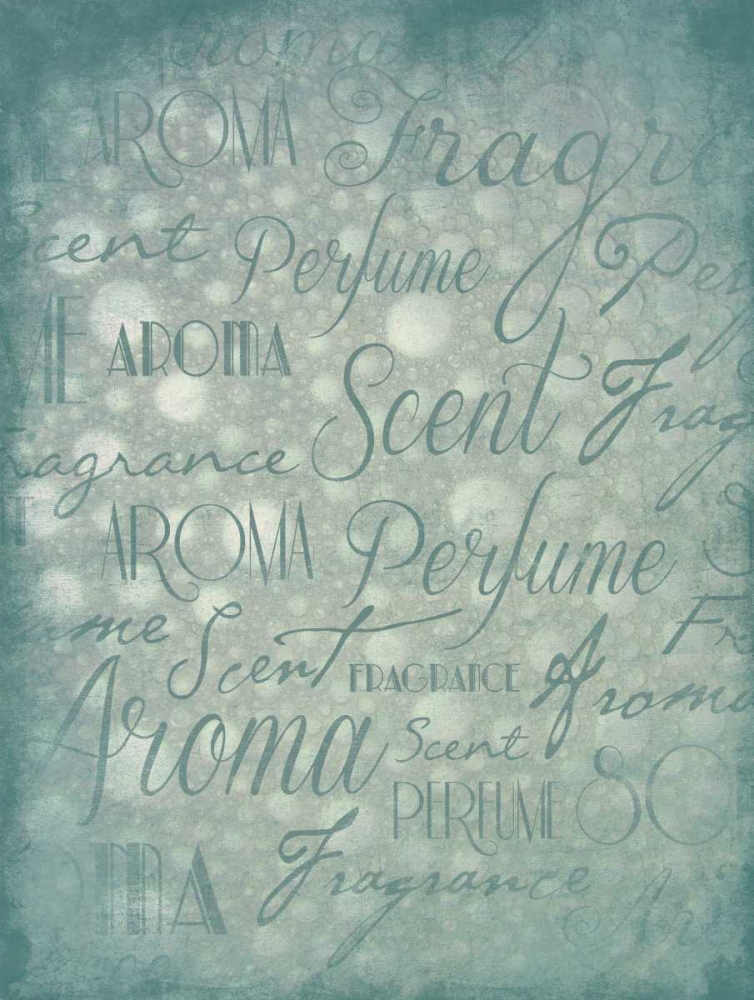 Aroma
AROMA Fragr
Scent Perfume Per
ME AROMA
Scent Frag
ragrance
AROMA Perfume
ume Scent Fr
FRAGRANCE Aroma
Aroma Scent
PERFUME SC
MA Fragrance